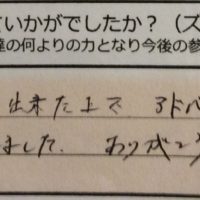 ていかがでしたか？（ズ
達の何よりの力となり今後の参
出来た上で アドバ
ました。 ありがとう